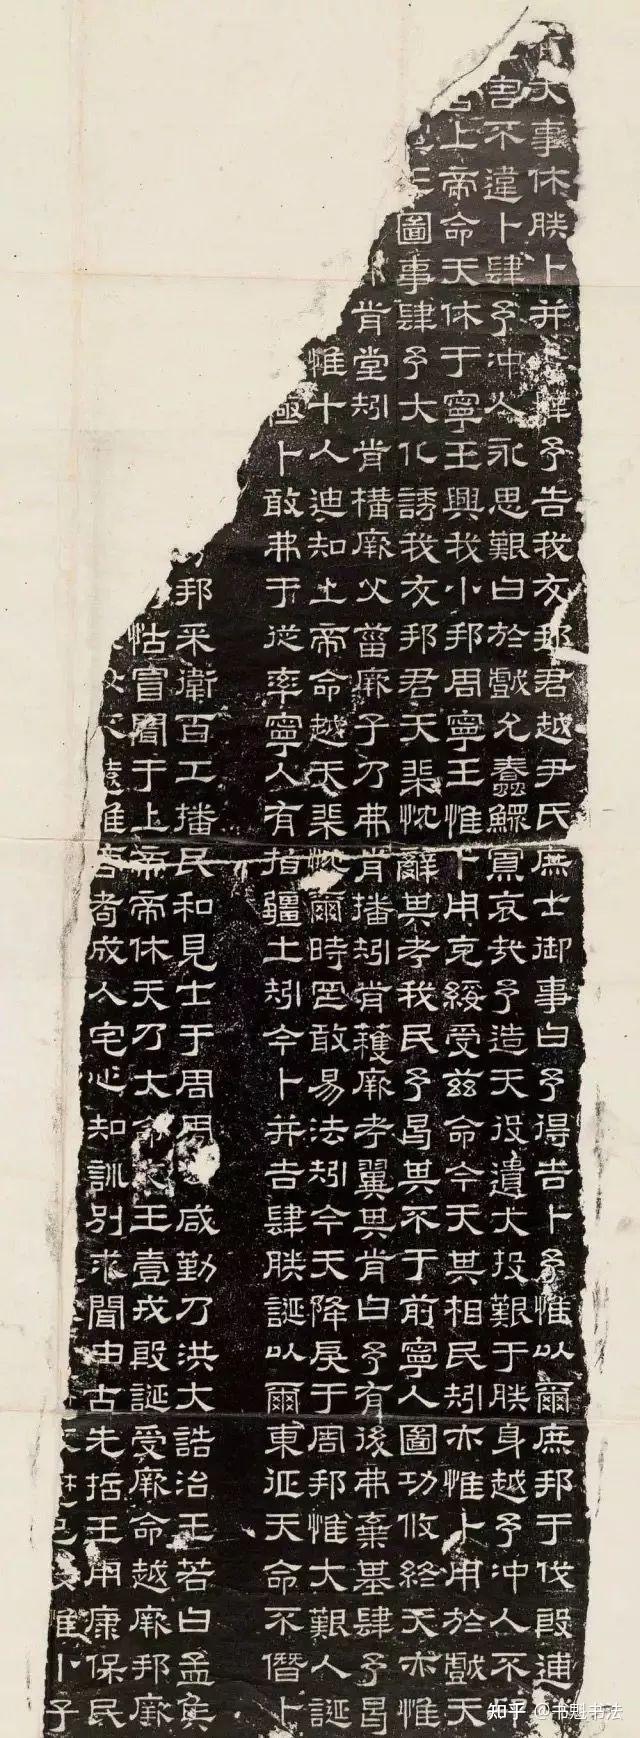 大事休朕卜并肆予告我友邦君越尹氏庶士御事曰予得吉卜予惟以爾庶邦于伐殷逋
害不違卜肆予沖人永思艱曰於戲允蠢鰥寡哀哉予造天役遺大投艱于朕身越予沖人不卬
上帝命天休于寧王興我小邦周寧王惟卜用克綏受茲命今天其相民矧亦惟卜用於戲天
圖事肆予大化誘我友邦君天棐忱辭其考我民予曷其不于前寧人圖功攸終天亦惟
肯堂矧肯構厥父菑厥子乃弗肯播矧肯穫厥考翼其肯曰予有後弗棄基肆予曷
惟十人迪知上帝命越天棐忱爾時罔敢易法矧今天降戾于周邦惟大艱人誕
極卜敢弗于從率寧人有指疆土矧今卜并吉肆朕誕以爾東征天命不僭卜
邦采衛百工播民和見士于周周咸勤乃洪大誥治王若曰孟侯
怙冒聞于上帝帝休天乃大命王壹戎殷誕受厥命越厥邦厥
遠惟耇成人宅心知訓別求聞由古先哲王用康保民
惟小子
知乎 @书魁书法